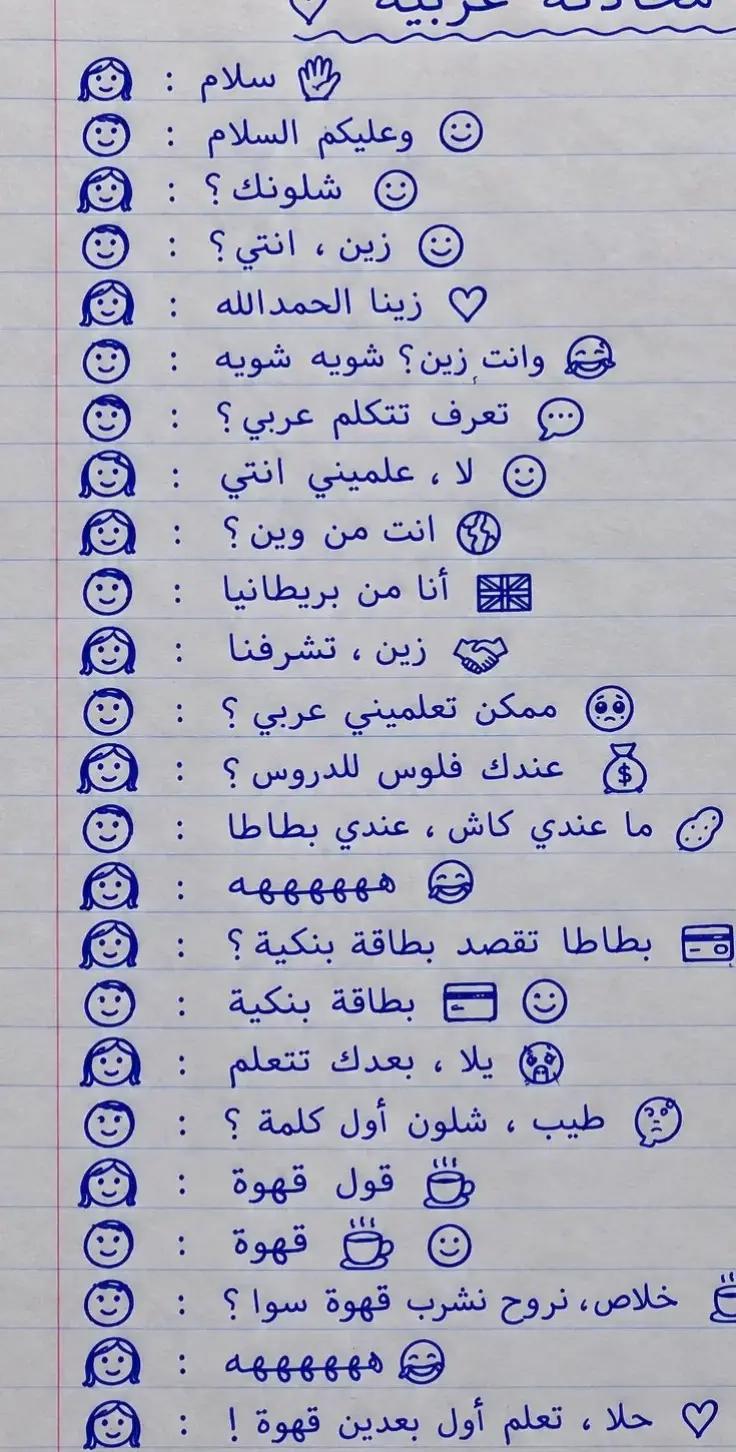 محادثة عربية
سلام :
وعليكم السلام :
شلونك ؟ :
زين ، انتي ؟ :
زينا الحمدالله :
وانت زين؟ شويه شويه :
تعرف تتكلم عربي ؟ :
لا ، علميني انتي :
انت من وين ؟ :
أنا من بريطانيا :
زين ، تشرفنا :
ممكن تعلميني عربي ؟ :
عندك فلوس للدروس ؟ :
ما عندي كاش ، عندي بطاطا :
ههههههه :
بطاطا تقصد بطاقة بنكية ؟ :
بطاقة بنكية :
يلا ، بعدك تتعلم :
طيب ، شلون أول كلمة ؟ :
قول قهوة :
قهوة :
خلاص، نروح نشرب قهوة سوا ؟ :
ههههههه :
حلا ، تعلم أول بعدين قهوة ! :